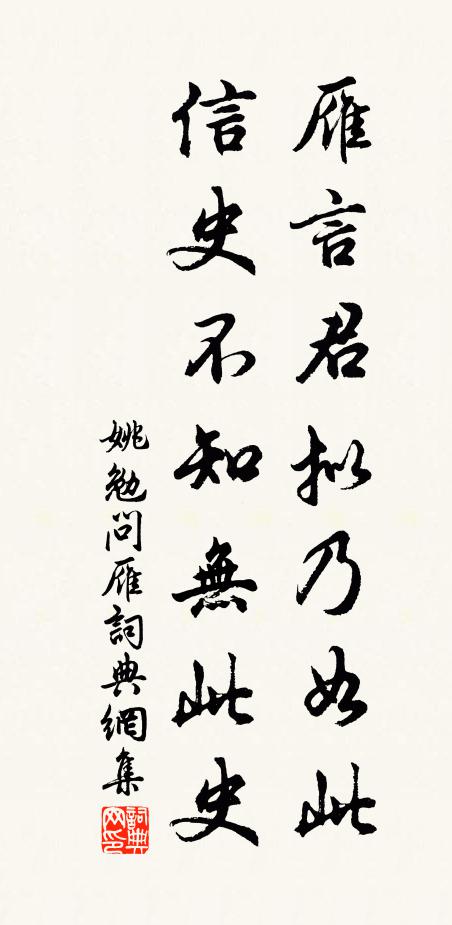 雁言君拟乃如此
信史不知無此史
姚勉問雁詞典網集
詞典网印